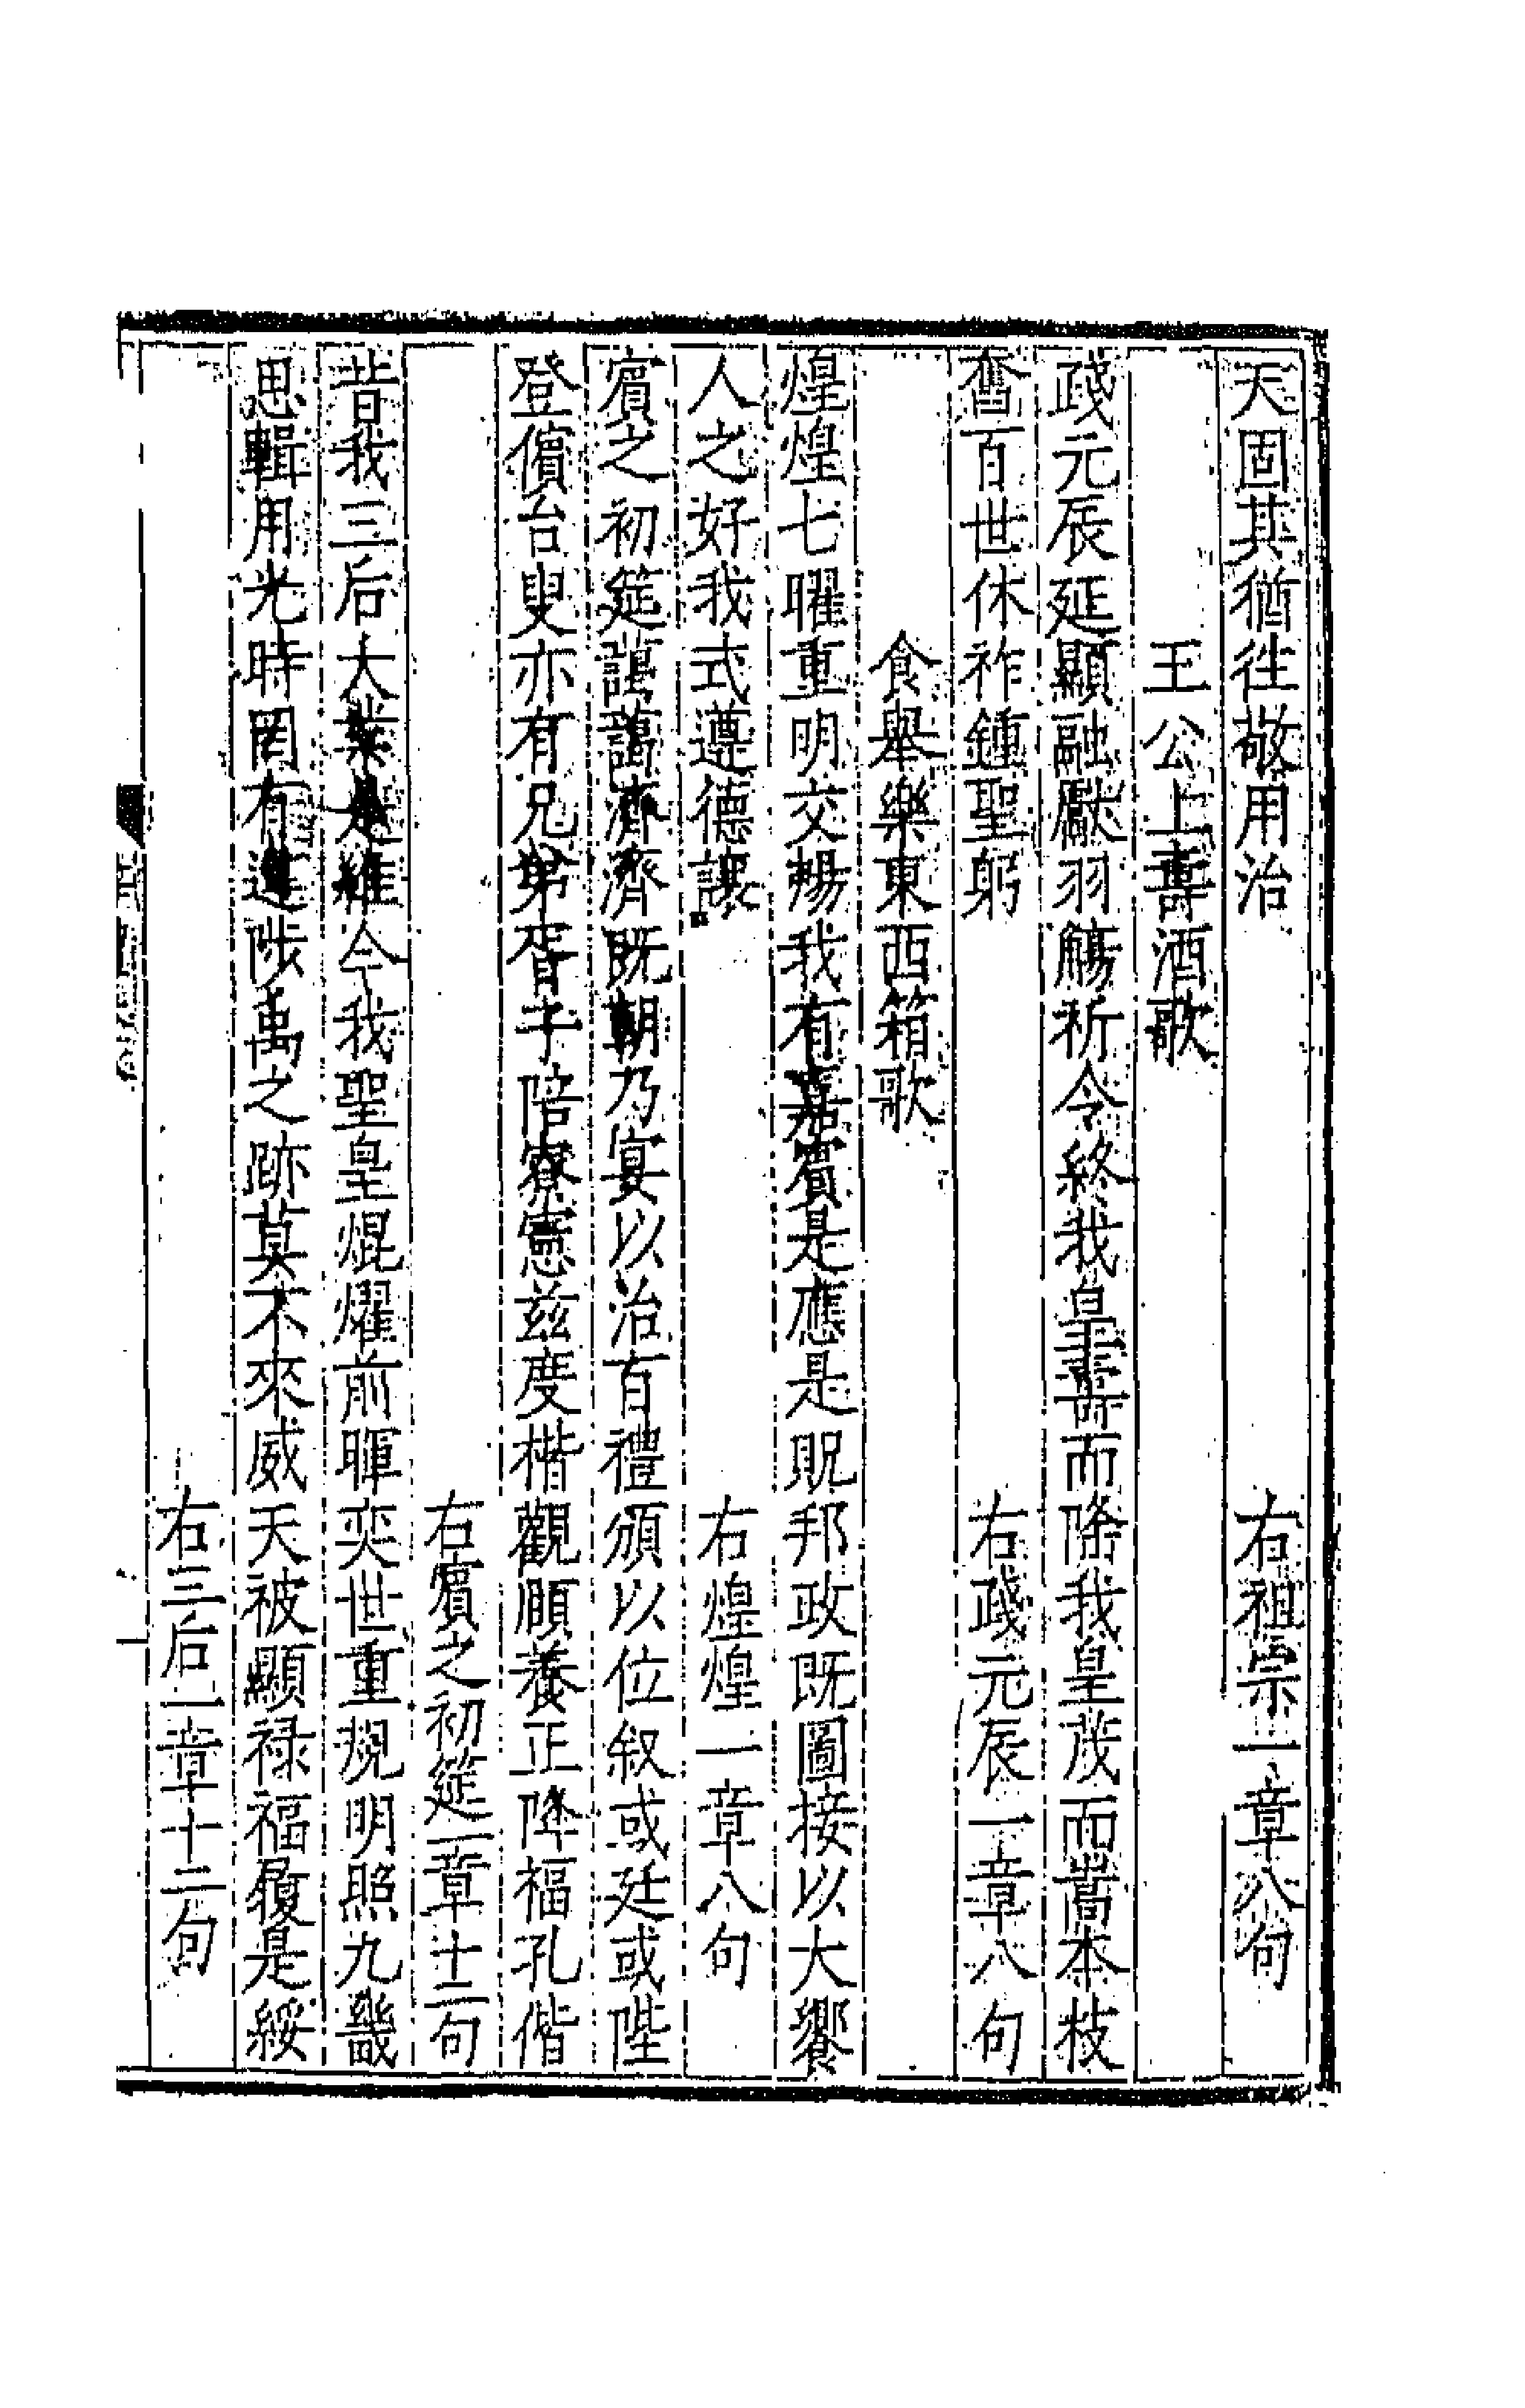 天固其猶往敬用治　右祖宗一章八句
王公上壽酒歌
踐元辰延顯融獻羽觴祈令終我皇壽而隆我皇茂而嵩本枝
奮百世休祚鍾聖躬　右踐元辰一章八句
食舉樂東西箱歌
煌煌七曜重明交暢我有嘉賓是應是貺邦政既圖接以大饗
人之好我式遵德讓　右煌煌一章八句
賓之初筵藹藹濟濟既朝乃宴以洽百禮頒以位叙或廷或陛
登儐台叟亦有兄弟胥子陪寮憲兹度楷觀頤養正降福孔偕
右賓之初筵一章十二句
昔我三后大業是維今我聖皇焜燿前暉奕世重規明照九畿
思輯用光時罔有違陟禹之跡莫不來威天被顯禄福履是綏
右三后一章十二句